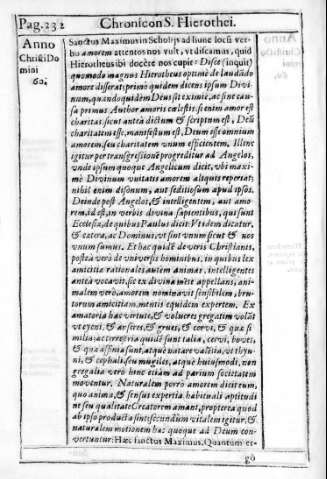 Pag. 232
Chronicon S. Hierothei.
Anno
Christi Do
mini
60.
Sanctus Maximus in Scholijs ad hunc locũ ver-
bis amorem attentos nos vult, vt discamus, quid
Hierotheus ibi docere nos cupit: Disce (inquit)
quomodo magnus Hierotheus optimè de laudãdo
amore disserat: primò quidem dicens ipsum Divi
num, quandoquidem Deus sit eximiè, ac sine cau-
sa primus Author amoris cælestis. si enim amor est
charitas sicut anteà dictũ & scriptum est, Deũ
charitatem esse, manifestum est, Deum esse omnium
amorem, seu charitatem vnum efficientem. Hinc
igitur per transgressionẽ progreditur ad Angelos,
vnde ipsum quoque Angelicum dicit. vbi maxi-
mè Divinum vnitatis amorem aliquis reperiat;
nihil enim dissonum, aut seditiosum apud ipsos.
Deinde post Angelos, & intelligentem, aut amo-
rem, id est, in verbis divina sapientibus, qui sunt
Ecclesiæ, de quibus Paulus dicit: Vt idem dicatur,
& cætera, ac Dominus, vt sint vnum sicut & nos
vnum sumus. Et hæc quidẽ de veris Christianis,
posteà verò de universis hominibus, in quibus lex
amicitiæ rationales autem animas, intelligentes
anteà vocavit, sic ex divina mẽte appellans, ani-
malem verò, amorem nominavit sensibilem, bru-
torum amicitiam, mentis equidem expertem. Ex
amatoria hac virtute, & volucres gregatim volãt
vt cycni, & anseres, & grues, & corvi, & quæ si
milia: ac terrestria quidẽ sunt talia, cervi, boves,
& quæ assimilia sunt, atquè natare vacillia, vt thyn
ni, & cephali, seu mugiles, atque huiusmodi. non
gregalia verò hunc etiam ad parium societatem
moventur. Naturalem porrò amorem dicit eum,
quo anima, & sensus expertia habituali aptitudi
ne seu qualitate Creatorem amant, propterea quod
ab ipso producta sint secundùm vitalem igitur, &
naturalem motionem hæc quoque ad Deum con-
vertuntur. Hæc sanctus Maximus. Quantum er-
go